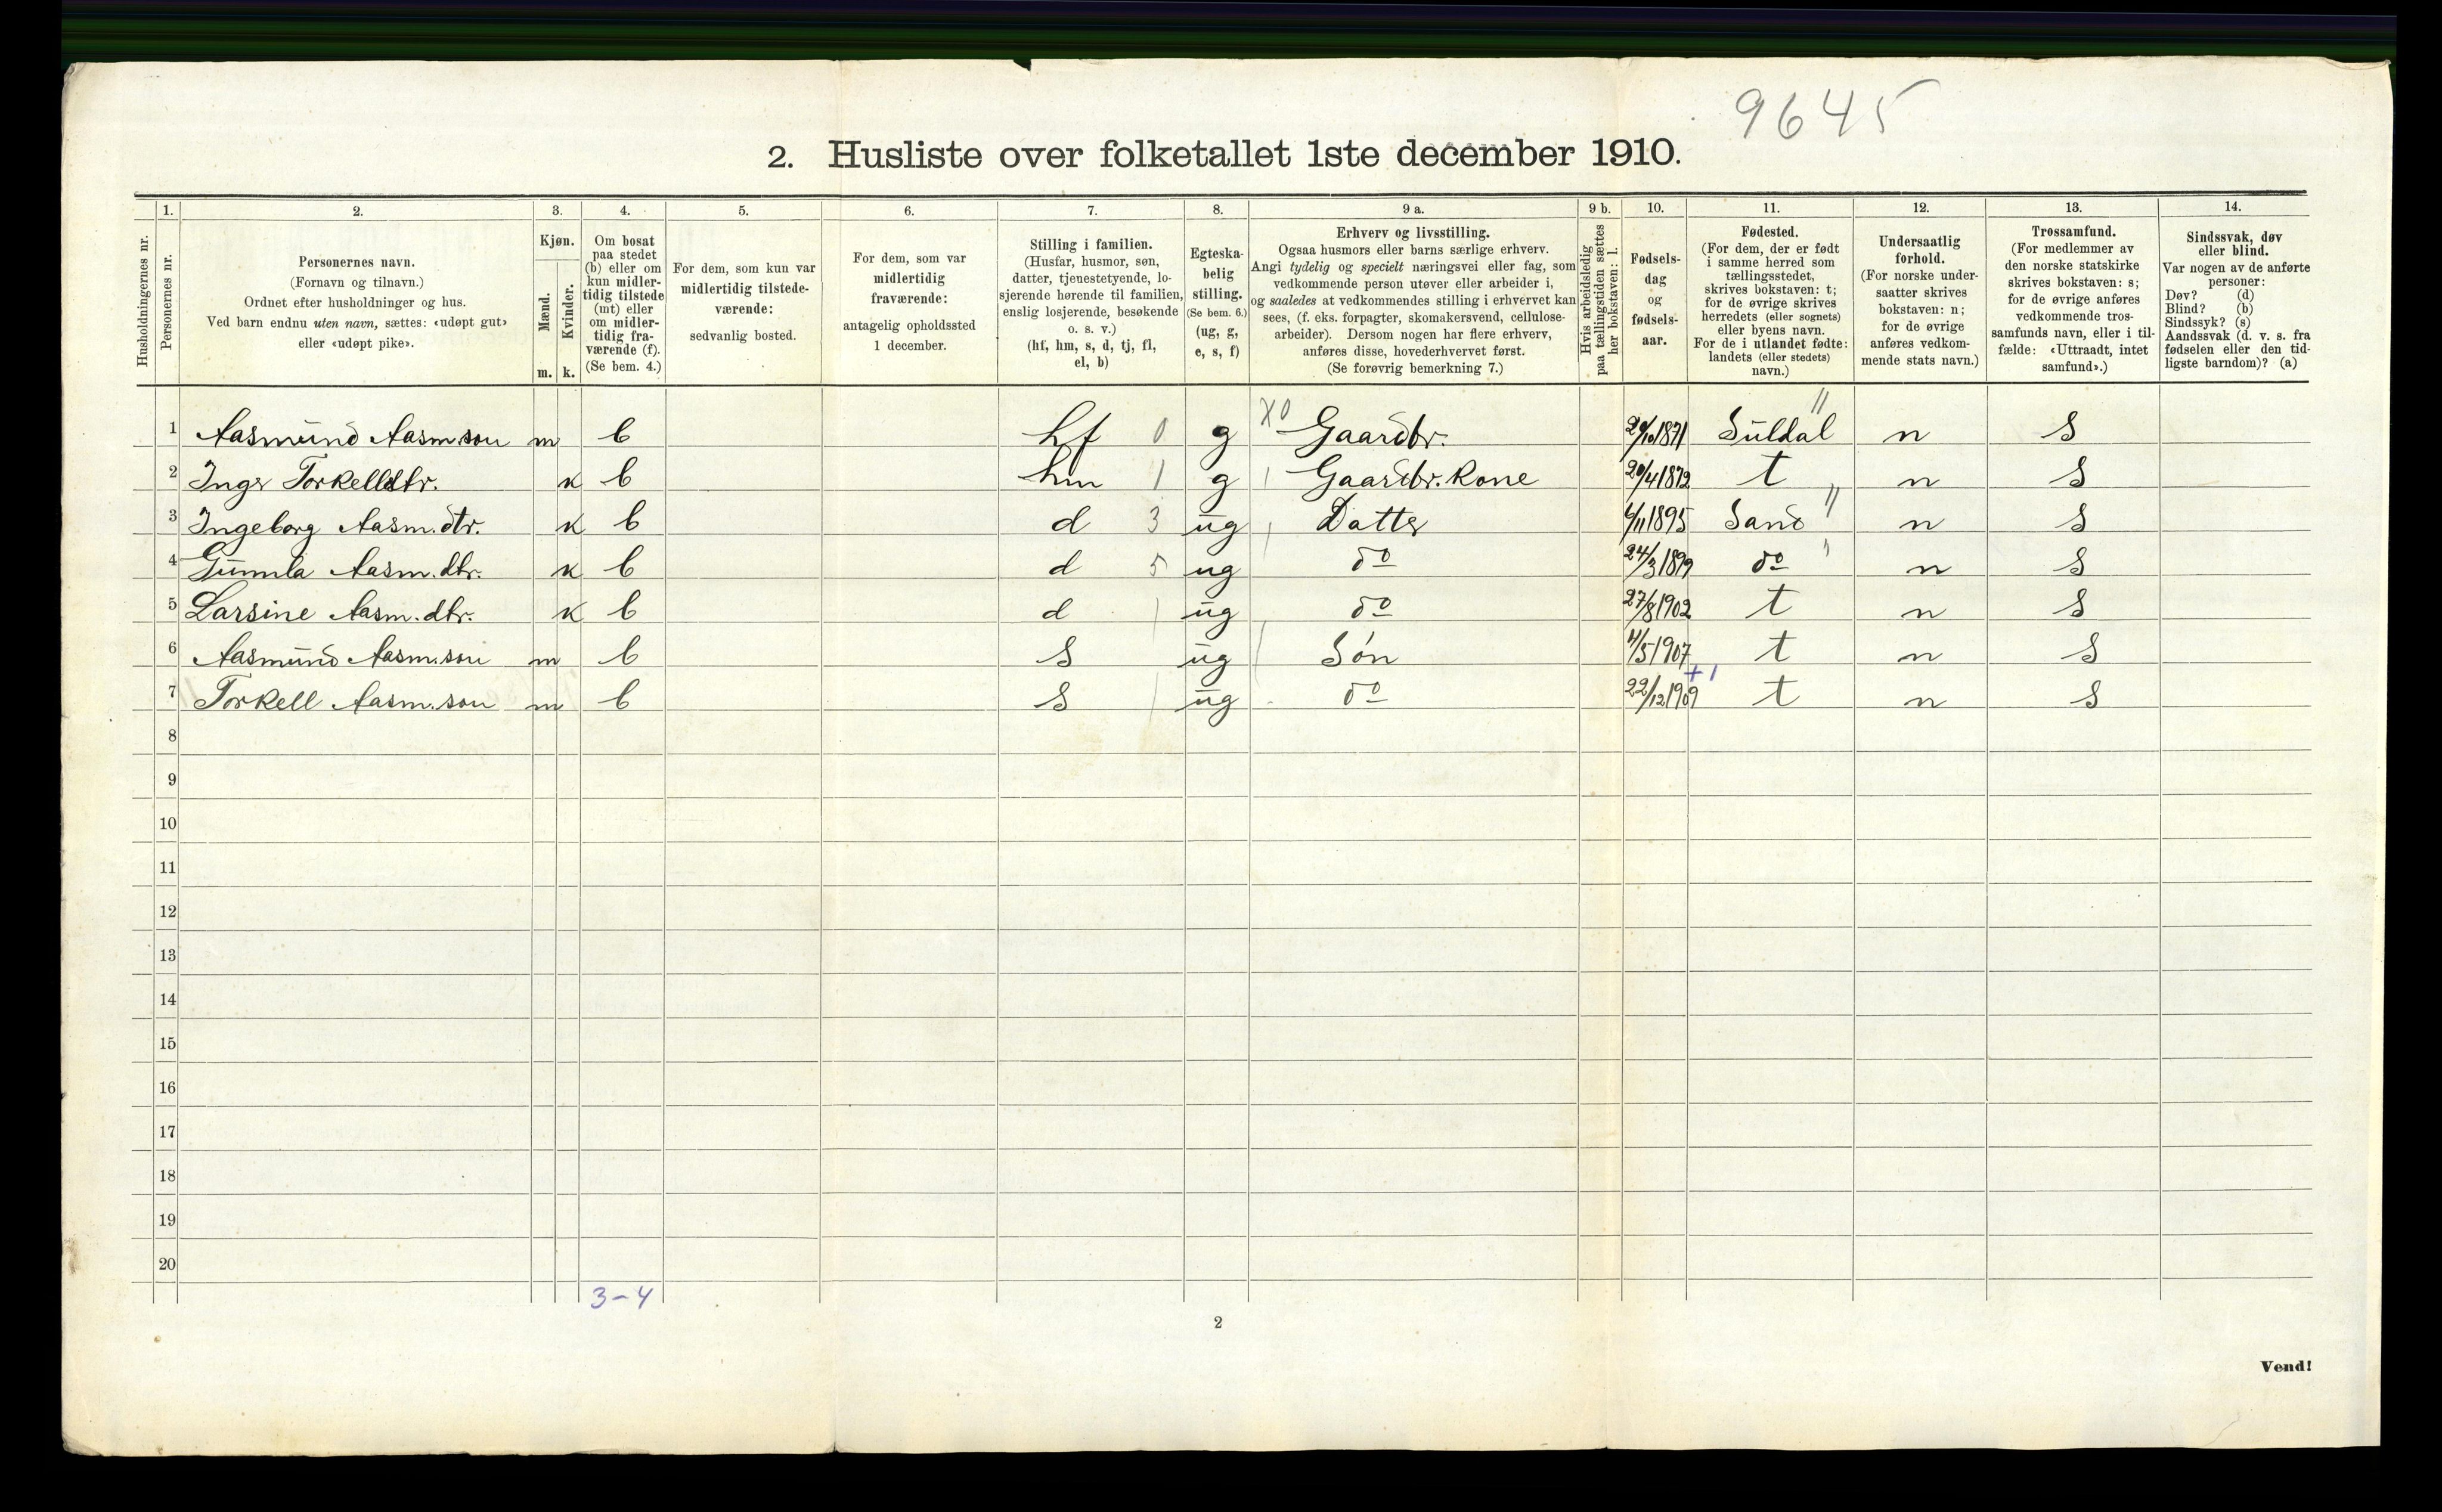 9645
2. Husliste over folketallet 1ste december 1910.
Husholdningernes nr.
1.
Personernes nr.
2.
Personernes navn.
(Fornavn og tilnavn.)
Ordnet efter husholdninger og hus.
Ved barn endnu uten navn, sættes: «udøpt gut»
eller «udøpt pike».
3.
Kjøn.
Mænd.
Kvinder.
m. k.
4.
Om bosat
paa stedet
(b) eller om
kun midler-
tidig tilstede
(mt) eller
om midler-
tidig fra-
værende (f).
(Se bem. 4.)
5.
For dem, som kun var
midlertidig tilstede-
værende:
sedvanlig bosted.
6.
For dem, som var
midlertidig
fraværende:
antagelig opholdssted
1 december.
7.
Stilling i familien.
(Husfar, husmor, søn,
datter, tjenestetyende, lo-
sjerende hørende til familien,
enslig losjerende, besøkende
o. s. v.)
(hf, hm, s, d, tj, fl,
el, b)
8.
Egteska-
belig
stilling.
(Se bem. 6.)
(ug, g,
e, s, f)
9 a.
Erhverv og livsstilling.
Ogsaa husmors eller barns særlige erhverv.
Angi tydelig og specielt næringsvei eller fag, som
vedkommende person utøver eller arbeider i,
og saaledes at vedkommendes stilling i erhvervet kan
sees, (f. eks. forpagter, skomakersvend, cellulose-
arbeider). Dersom nogen har flere erhverv,
anføres disse, hovederhvervet først.
(Se forøvrig bemerkning 7.)
9 b.
Hvis arbeidsledig
paa tællingstiden sættes
her bokstaven: l.
10.
Fødsels-
dag
og
fødsels-
aar.
11.
Fødested.
(For dem, der er født
i samme herred som
tællingsstedet,
skrives bokstaven: t;
for de øvrige skrives
herredets (eller sognets)
eller byens navn.
For de i utlandet fødte:
landets (eller stedets)
navn.)
12.
Undersaatlig
forhold.
(For norske under-
saatter skrives
bokstaven: n;
for de øvrige
anføres vedkom-
mende stats navn.)
13.
Trossamfund.
(For medlemmer av
den norske statskirke
skrives bokstaven: s;
for de øvrige anføres
vedkommende tros-
samfunds navn, eller i til-
fælde: «Uttraadt, intet
samfund».)
14.
Sindssvak, døv
eller blind.
Var nogen av de anførte
personer:
Døv? (d)
Blind? (b)
Sindssyk? (s)
Aandssvak (d. v. s. fra
fødselen eller den tid-
ligste barndom)? (a)
1 Aasmund Aasm.son m b hf 0 g X0 Gaardbr. /10 1871 Suldal " n s
2 Inger Torkellsdtr. k b hm 1 g Gaardbr. Kone 20/4 1872 t n s
3 Ingeborg Aasm.dtr. k b d 3 ug Datter /11 1895 Sand " n s
4 Gunnla Aasm.dtr. k b d 5 ug do 24/3 1899 do n s
5 Larsine Aasm.dtr. k b d ug do 27/8 1902 t n s
6 Aasmund Aasm.son m b s ug Søn 4/5 1907 t n s
+1
7 Torkell Aasm.son m b s ug do 22/12 1909 t n s
8
9
10
11
12
13
14
15
16
17
18
19
20
3-4
2
Vend!